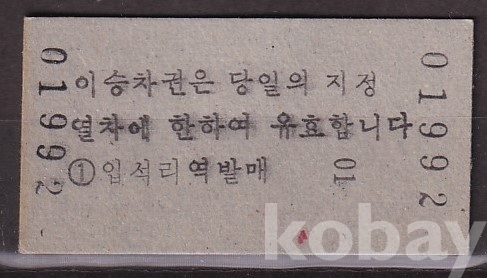 01992
이승차권은 당일의 지정
열차에 한하여 유효합니다
①입석리역발매
01
01992
kobay